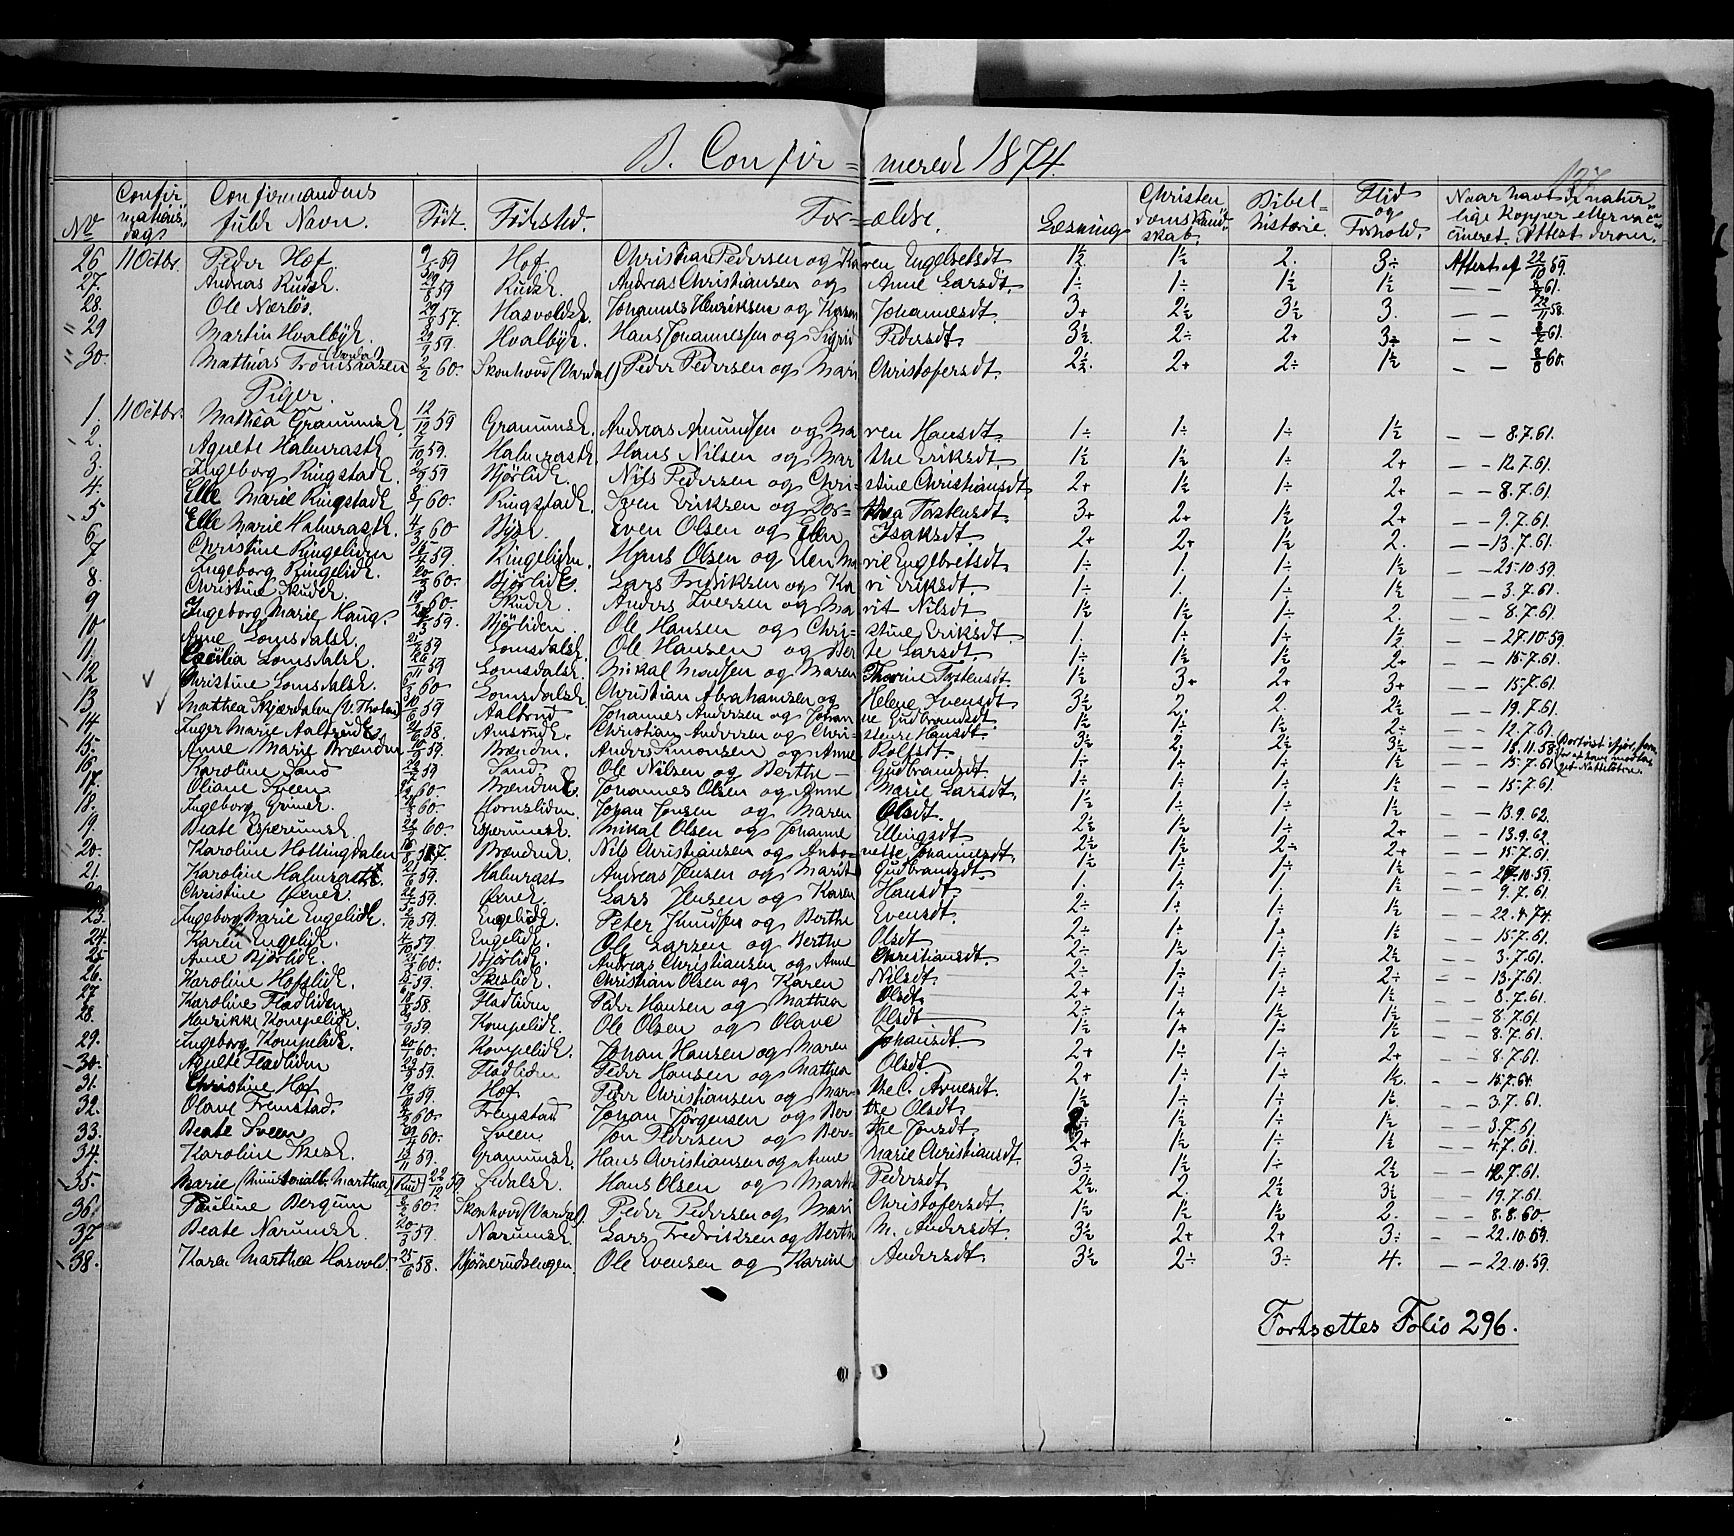 B. Confir= merede 1874.
No Confirmations dag Confirmandens fulde Navn. Født. Fødested. Forældre. Læsning Christendomskundskab. Bibelhistorie. Flid og Forhold. Naar havt de natur lige Kopper eller vac cineret. Attest derom.
26 11 Octbr. Peder Hof 59 Hof Christian Pedersen og Karen Engebretsdt. 1½ 1½ 2. 3÷ Attest af 22/10 59.
27. Andreas Rudsk. 59 Rudsk. Andreas Christiansen og Anne Larsdt. 1÷ 1÷ 1½ 1½ — — 61.
28. Ole Nærløs. 57. Hasvoldsk. Johannes Henriksen og Karen Johannesdt. 3+ 2½ 3½ 3. — — 58.
29 Martin Hvalbyk. 59 Hvalbyk. Hans Johannessen og Sigrid Pedersdt. 3½. 2÷ 2+ 3÷ — — 61.
30. Mathias Trømsnæsen (Vardal) 2/2 60. Skonhovd (Vardal) Peder Pedersen og Mari Christofersdt. 2½. 2+ 2÷ 1½ — — 8/8 60.
Piger.
1. 11 Octbr. Mathea Gramunsk. 12/12 59 Gramunsk. Andreas Amundsen og Maren Hansdt. 1÷ 1÷ 1÷ 1½ — — 8.7.61.
2. Agnete Halmrastk 7/10 59. Halmrastk. Hans Nilsen og Marthe Eriksdt. 1½ 1½ 1÷ 2+ — — 12.7.61.
3. Ingeborg Ringstadk. 59 Bjørlidk. Nils Pedersen og Christine Christiansdt. 2+ 1½ 1÷ 2+ — — 8.7.61.
4. Elle Marie Ringstadk. 8/1 60. Ringstadk. Sven Eriksen og Dorthea Torstensdt. 3+ 2+ 1½ 2+ — — 9.7.61.
5 Elle Marie Halmrastk. 4/3 60 Even Olsen og Elen Isaksdt. 2+ 2+ 1½ 2. — — 13.7.61.
6. Christine Ringeliden 59. Ringeliden. Hans Olsen og Elen Marie Engebretsdt. 1÷ 1. 1÷ 1½ — — 25.10.59.
7 Ingeborg Ringelidk. 20/3 60. Bjørlidk. Lars Fredriksen og Kari Eriksdt. 1÷ 1. 1÷ 1½ — — 3.7.61.
8. Christine Skudek. 60. Skudek. Anders Iversen og Marit Nilsdt. 1½ 1½ 1÷ 2. — — 8.7.61.
9 Ingeborg Marie Haug. 59. Bjørliden. Ole Hansen og Christine Eriksdt. 1. 1÷ 1÷ 1½ — — 27.10.59
10. Anne Lomsdalsk. 59 Lomsdalsk. Ole Hansen og Berte Larsdt. 1÷ 1½ 1½ 2+ — — 15.7.61.
11. Cæcilia Lomsdalsk. 59 Lomsdalsk. Mikal Monssen og Maren Thorine Torstensdt. 1÷ 3+ 2+ 3+ — — 15.7.61.
12 Christine Lomsdalsk. 60 Lomsdalsk. Christian Abrahamsen og Helene Svensdt. 3½ 2. 2. 2½ — — 19.7.61.
13. Mathea Skjærdalen (V. Thoten) 59 Aalsrud Johannes Andersen og Johanne Gudbrandsdt. 1½ 1÷ 1÷ 2÷ — — 12.7.61.
14 Inger Marie Aalsrudk 58. Amsrudk. Christian Andersen og Christense Hansdt. 3½ 2. 2½ 3½ — — 18.11.58.
15. Anne Marie Brænden 59. Brænden. Anders Simonsen og Anne Rolfsdt. 1÷ 1÷ 1÷ 1½ — — 15.7.61
16. Karoline Sand 59 Sand Ole Nilsen og Berthe Gudbrandsdt. 1÷ 1÷ 1÷ 1÷ — — 15.7.61.
17. Oliane Sveen 60. Brændenk Johannes Olsen og Anne Marie Larsdt. 1½ 1÷ 1÷ 1½ — — 13.9.62.
18. Ingeborg Grimer. 60. Hornsliden. Johan Jensen og Maren Olsdt. 2½ 1½ 1÷ 2+ — — 13.9.62.
19. Beate Esperumsk. 60 Esperumsk. Mikal Olsen og Johanne Ellingsdt. 2½ 1½ 2÷ 2+ — — 15.7.61
20. Karoline Hollingdalen 57 Brændenk. Nils Christiansen og Antonette Johannesdt. 1½ 1÷ 1÷ 1½ — — 27.10.59.
21. Karoline Halmrastk. 59. Halmrast Andreas Jensen og Marit Gudbrandsdt. 1. 1÷ 1. 1½ — — 9.7.61.
22. Christine Øsnek. 59. Øsnek. Lars Jensen og Karen Hansdt. 2÷ 1÷ 1÷ 1½ — — 22.4.74.
23. Ingeborg Marie Engelidk. 59. Engelidk. Peter Knudsen og Berthe Evensdt. 2÷ 1÷ 1÷ 1½ — — 15.7.61.
24. Karen Engelidk. 59. Engelidk. Ole Larsen og Berthe Olsdt. 2÷ 1½ 1÷ 2½ — — 3.7.61.
25. Anne Bjørlidk. 60. Bjørlidk. Andreas Christiansen og Anne Christiansdt. 2÷ 1÷ 1÷ 2÷ — — 13.7.61.
26. Karoline Hofslidk. 59. Skislidk. Christian Olsen og Karen Nilsdt. 2+ 1÷ 1÷ 1½ — — 8.7.61.
27 Karoline Fladliden 58. Fladliden Peder Hansen og Mathea Olsdt. 2÷ 1+ 1½ 1½ — — 8.7.61.
28. Henrikke Kompelidk. 59. Kompelidk. Ole Olsen og Olave Olsdt. 1½ 1+ 1÷ 1½ — — 8.7.61.
29. Ingeborg Kompelidk. 20/1 60. Kompelidk. Johan Hansen og Maren Johansdt. 2+ 1÷ 1÷ 2+ — — 8.7.61.
30. Agnete Fladliden 59. Fladliden Peder Hansen og Mathea Olsdt. 2+ 1÷ 1÷ 1½. — — 15.7.64.
31. Christine Hof 59. Hof Peder Christiansen og Marthe C. Arnesdt. 1½ 1÷ 1÷ 1½. — — 3.7.61.
32. Olave Fremstad. 60. Fremstad Johan Jørgensen og Berthe Olsdt. 1½ 1÷ 1½ — — 3.7.61.
33. Beate Sveen 60. Sveen Jon Pedersen og Berthe Jonsdt. 2+ 1½ 1÷ 1½ — — 4.7.61.
34. Karoline Skesk. 59. Gramunsk. Hans Christiansen og Anne Marie Christiansdt. 3÷ 1½ 1÷ 2½ — — 12.7.61.
35. Marie Marthea (Rud) 22/12 59. Hans Olsen og Marthe Pedersdt. 2½. 2. 2½ 3½ — — 19.7.61.
36. Pauline Bergum 60. Skonhovd (Vardal). Peder Pedersen og Mari Christofersdt. 1½ 1½ 1½ 2. — — 8.8.60.
37. Beate Narumsk. 59. Narumsk. Lars Fredriksen og Berthe M. Andersdt. 3½ 2+ 2+ 3÷ — — 22.10.59.
38. Karen Marthea Hasvold 25/6 58. Bjørnerudsengen. Ole Evensen og Karine Andersdt. 3½ 2÷ 3÷ 4. — — 22.10.59.
Fortsættes Folio 296.